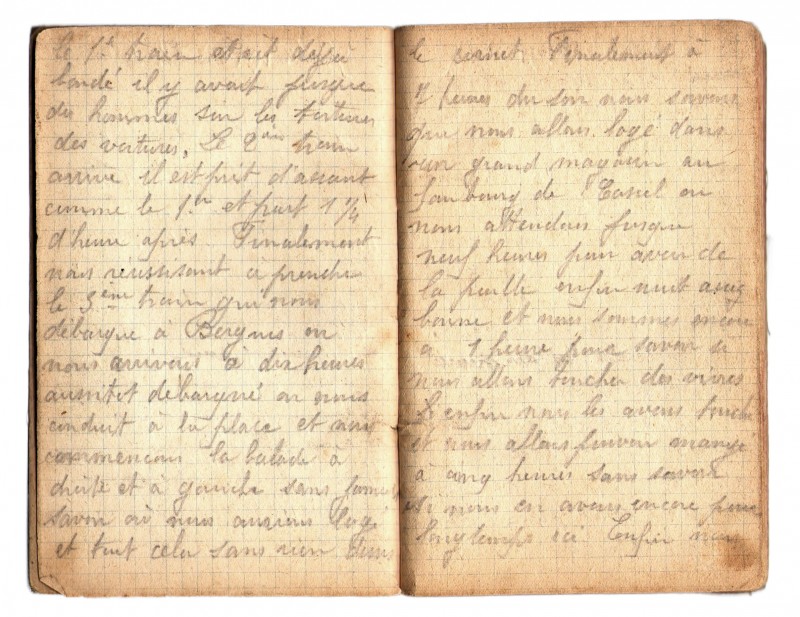 le 1er train était déjà
bondé il y avait jusque
des hommes sur les toitures
des voitures. Le 2ème train
arrive il est prit d'assaut
comme le 1er et part 1/4
d'heure après. Finalement
nous réussisont à prendre
le 3ème train qui nous
débarque à Bergues ou
nous arrivons à dix heures
aussitot débarqué on nous
conduit à la place et nous
commencons la balade à
droite et à gauche sans
savoir où nous aurions logé
et tout cela sans rien dans
le Finalement à
7 heures du soir nous savons
que nous allons logé dans
un grand magasin au
faubourg de Cassel ou
nous attendons jusque
neuf heures pour avoir de
la paille enfin nuit assez
bonne et nous sommes encore
à 1 heure pour savoir si
nous allons toucher des vivres
enfin nous les avons touché
et nous allons pouvoir mangé
à cinq heures sans savoir
si nous en avons encore pour
longtemps ici. Enfin nous